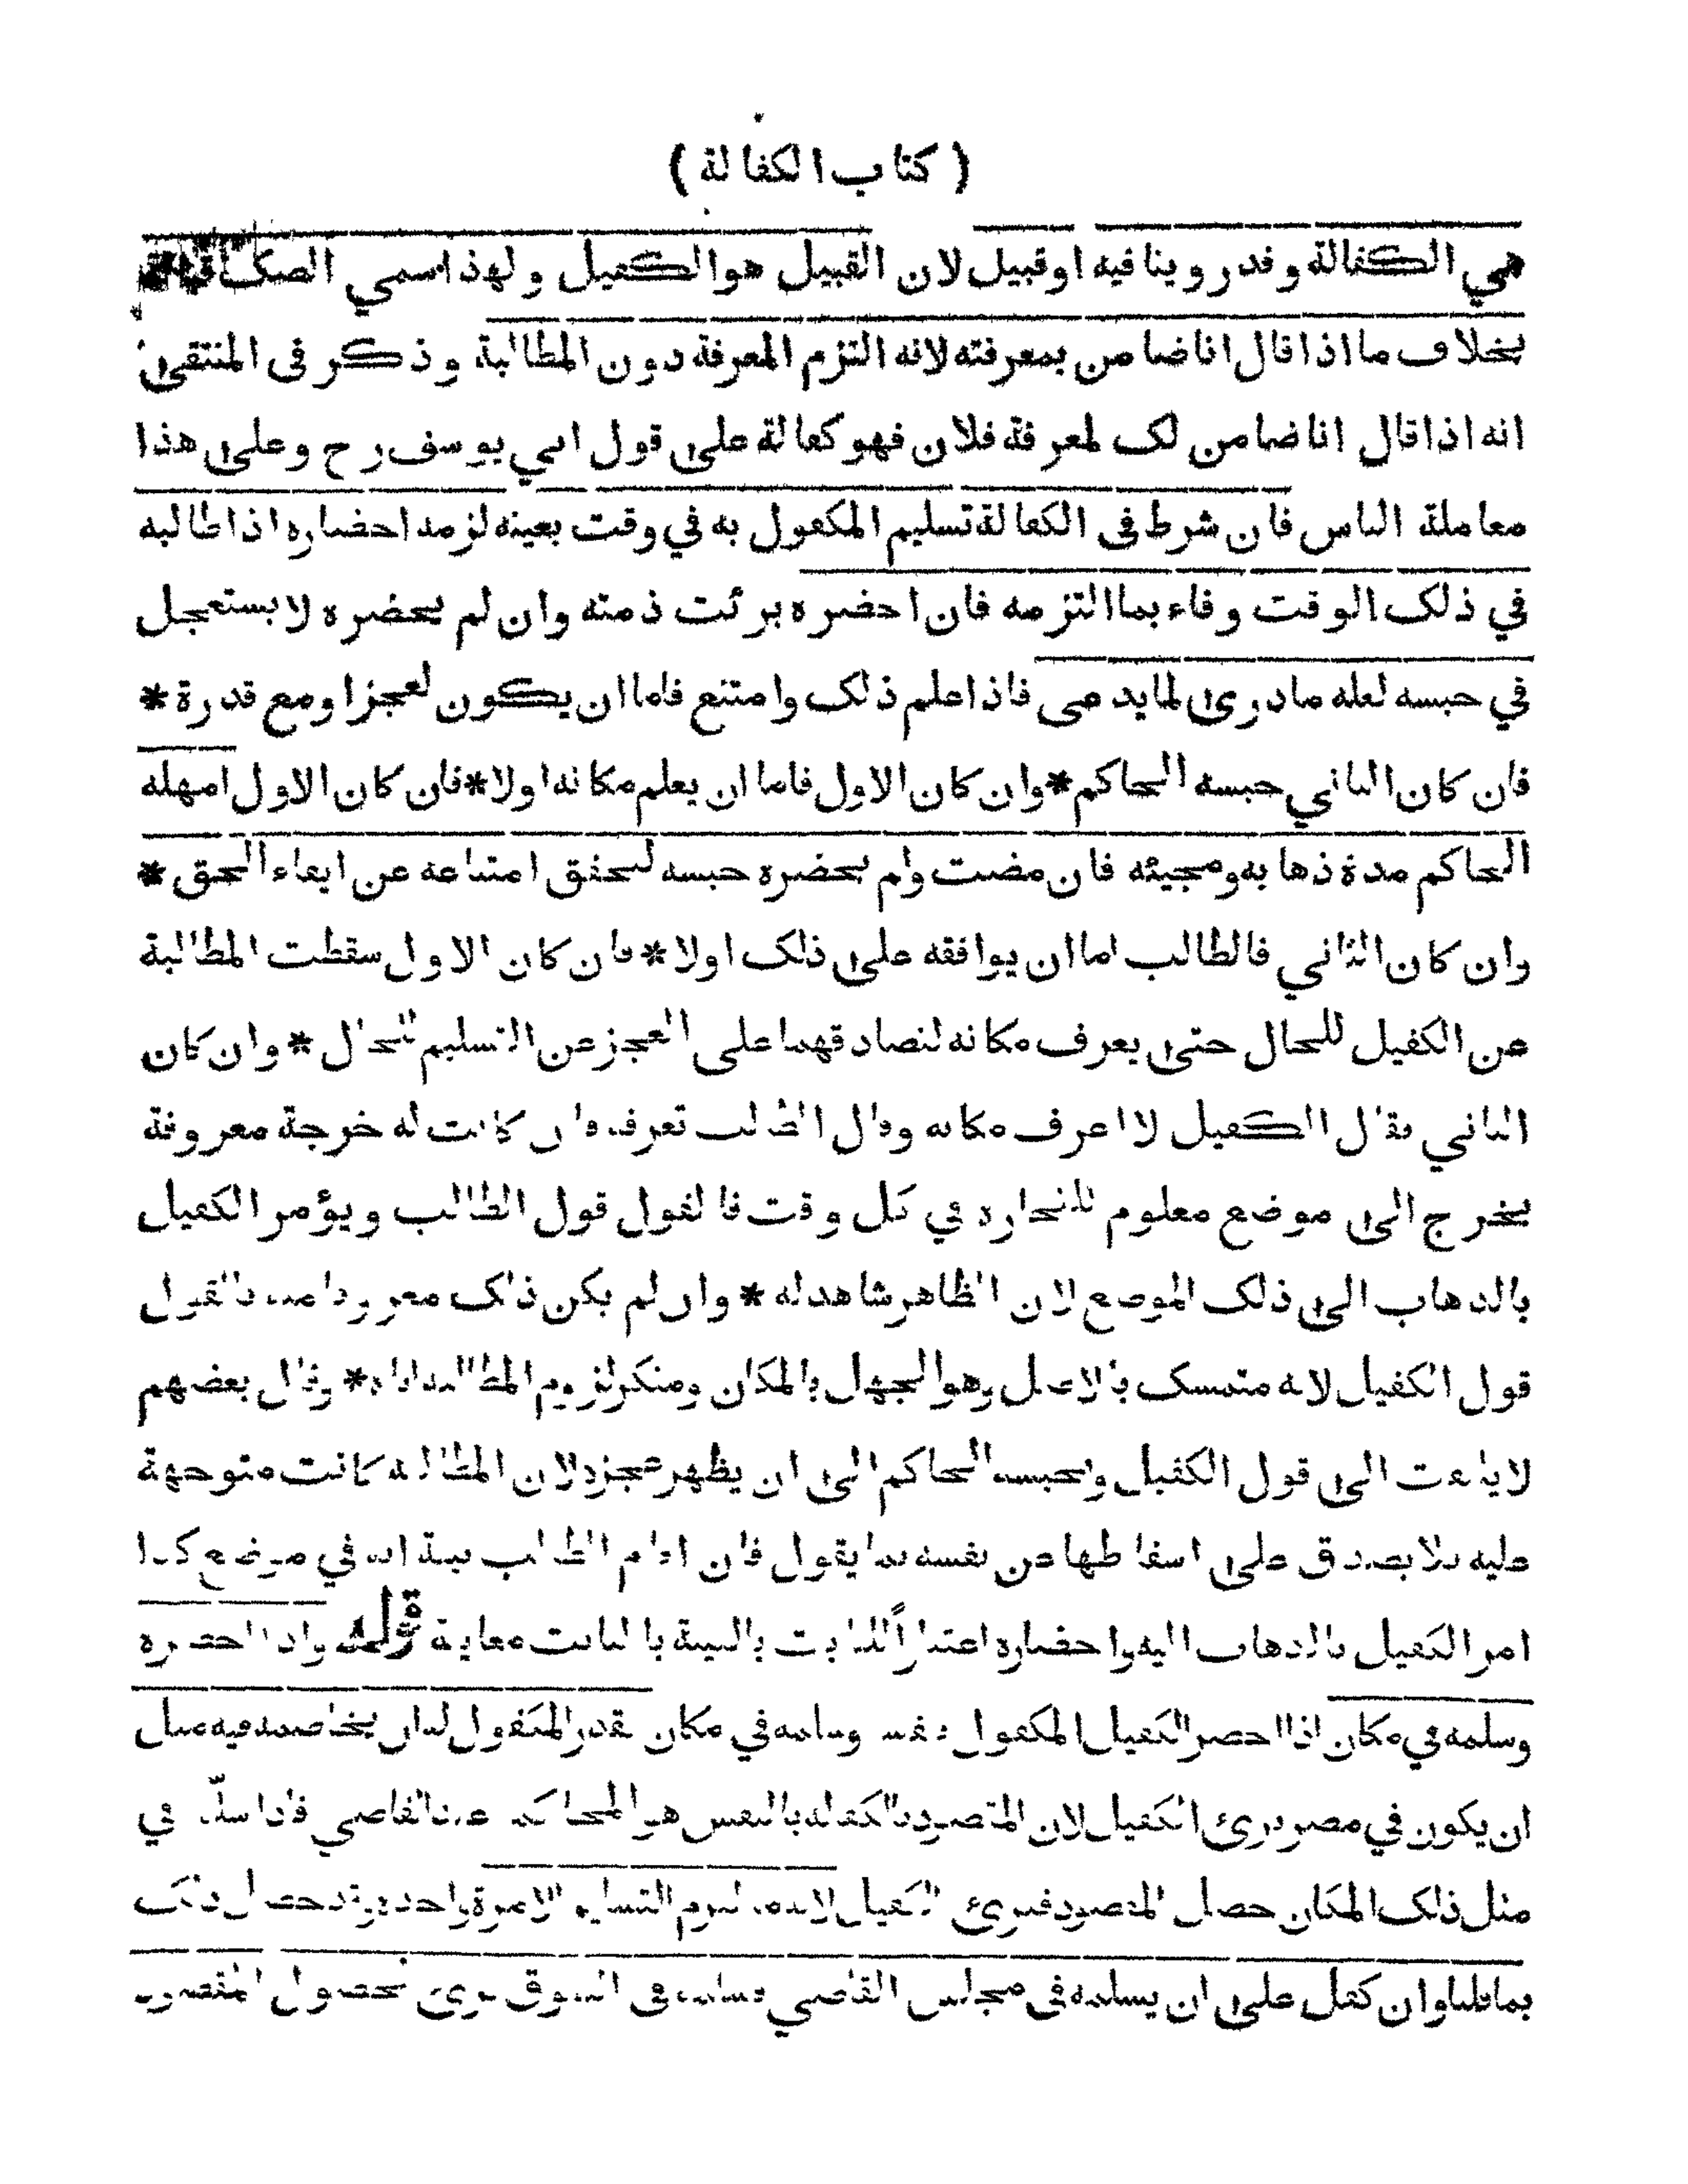 ( كتاب الكفالة )
هي الكفالة وقدر وينا فيه اوقبيل لان القبيل هو الكفيل ولهذا سمي الصك
بخلاف ما اذا قال انا ضامن بمعرفته لانه التزم المعرفة دون المطالبة وذكر في المنتقى
انه اذا قال انا ضامن لك لمعرفة فلان فهو كفالة على قول ابي يوسف رح وعلى هذا
معاملة الناس فان شرط في الكفالة تسليم المكفول به في وقت بعينه لزمه احضاره اذا طالبه
في ذلك الوقت وفاء بما التزمه فان احضره برئت ذمته وان لم يحضره لا يستعجل
في حبسه لعله ما درى لما يدعى فاذا علم ذلك وامتنع فاما ان يكون لعجز او مع قدرة *
فان كان الثاني حبسه الحاكم * وان كان الاول فاما ان يعلم مكانه اولا * فان كان الاول امهله
الحاكم مدة ذهابه ومجيئه فان مضت ولم يحضره حبسه لتحقق امتناعه عن ايفاء الحق *
وان كان الثاني فالطالب اما ان يوافقه على ذلك اولا * فان كان الاول سقطت المطالبة
عن الكفيل للحال حتى يعرف مكانه لتصادقهما على العجز عن التسليم للحال * وان كان
الثاني فقال الكفيل لا اعرف مكانه وقال الطالب تعرفه فان كانت له خرجة معروفة
يخرج الى موضع معلوم للتجارة في كل وقت فالقول قول الطالب ويؤمر الكفيل
بالذهاب الى ذلك الموضع لان الظاهر شاهد له * وان لم يكن ذلك معروفا منه فالقول
قول الكفيل لانه متمسك بالاصل وهو الجهل بالمكان ومنكر لزوم المطالبة اياه * وقال بعضهم
لا يلتفت الى قول الكفيل ويحبسه الحاكم الى ان يظهر عجزه لان المطالبة كانت متوجهة
عليه فلا يصدق على اسقاطها عن نفسه بما يقول فان اقام الطالب بينة انه في موضع كذا
امر الكفيل بالذهاب اليه واحضاره اعتبارا للثابت بالبينة بالثابت معاينة قوله واذا احضره
وسلمه في مكان اذا احضر الكفيل المكفول بنفسه وسلمه في مكان يقدر المكفول له ان يخاصمه فيه مثل
ان يكون في مصر برئ الكفيل لان المقصود بالكفالة بالنفس هو المحاكمة عند القاضي فاذا سلمه في
مثل ذلك المكان حصل المقصود فيبرئ الكفيل لانه ما التزم التسليم الا مرة واحدة وقد حصل ذلك
بما قلنا وان كفل على ان يسلمه في مجلس القاضي فسلمه في السوق برئ لحصول المقصود